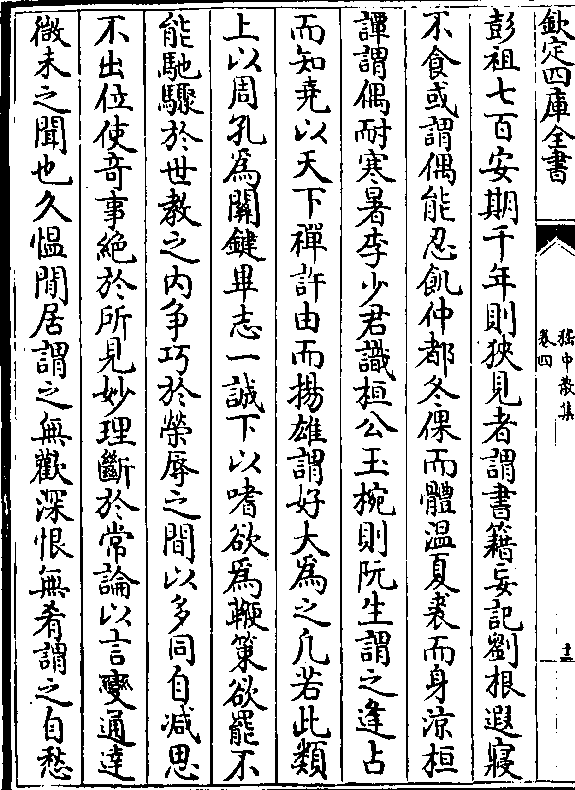 欽定四庫全書
嵇中散集
卷四
十二
彭祖七百安期千年則狹見者謂書籍妄記劉根遐寢
不食或謂偶能忍飢仲都冬倮而體温夏裘而身涼桓
譚謂偶耐寒暑李少君識桓公玉椀則阮生謂之逢占
而知堯以天下禪許由而揚雄謂好大為之凡若此類
上以周孔為關鍵畢志一誠下以嗜欲為鞭策欲罷不
能馳驟於世教之内争巧於榮辱之間以多同自减思
不出位使奇事絶於所見妙理斷於常論以言變通達
微未之聞也久愠閒居謂之無歡深恨無肴謂之自愁